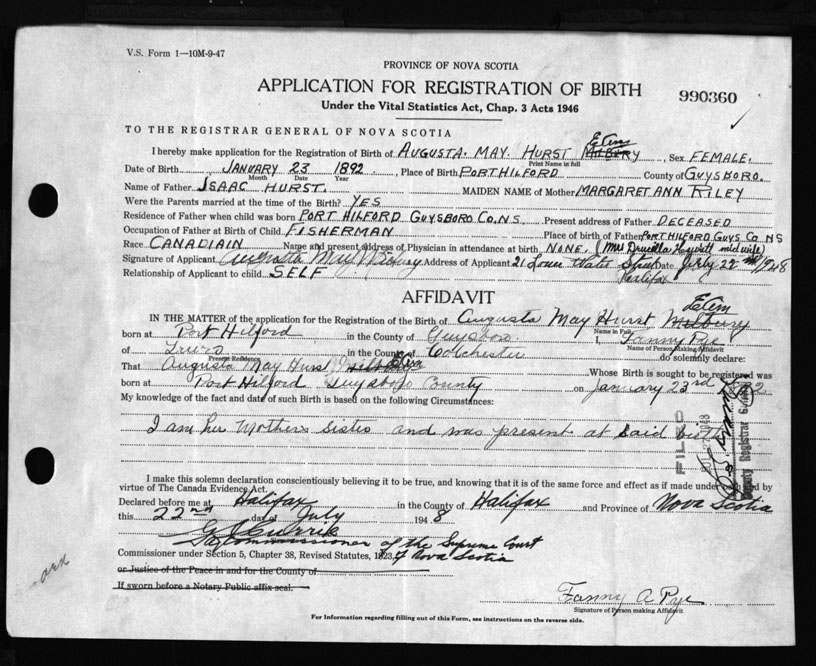 V.S. Form 1—10M-9-47
PROVINCE OF NOVA SCOTIA
APPLICATION FOR REGISTRATION OF BIRTH
990360
Under the Vital Statistics Act, Chap. 3 Acts 1946
TO THE REGISTRAR GENERAL OF NOVA SCOTIA
I hereby make application for the Registration of Birth of AUGUSTA. MAY. HURST MILBURY, Sex FEMALE.
Print Name in full
Date of Birth JANUARY 23 1892, Place of Birth, PORT HILFORD County of GUYSBORO.
Month Date Year
Name of Father ISAAC HURST. MAIDEN NAME of Mother MARGARET ANN RILEY
Were the Parents married at the time of the Birth? YES
Residence of Father when child was born PORT HILFORD GUYSBORO CO. N.S. Present address of Father DECEASED
Occupation of Father at Birth of Child FISHERMAN Place of birth of Father PORT HILFORD GUYS CO NS
Race CANADIAIN Name and present address of Physician in attendance at birth NONE. (Mrs Druilla midwife)
Signature of Applicant Augusta May Milbury Address of Applicant 21 Lower Water Street Date July 22 1948
Halifax
Relationship of Applicant to child SELF
AFFIDAVIT
IN THE MATTER of the application for the Registration of the Birth of Augusta May Hurst Milbury
Name in Full
born at Port Hilford in the County of Guysboro. I, Fanny Pye
Name of Person Making Affidavit
of Truro in the County of Colchester do solemnly declare:
Present Residence
That Augusta May Hurst Whose Birth is sought to be registered was
born at Port Hilford Guysboro County on January 23rd
My knowledge of the fact and date of such Birth is based on the following Circumstances:
I am her Mothers Sister and was present at said birth
FILED
Deputy Registrar General
I make this solemn declaration conscientiously believing it to be true, and knowing that it is of the same force and effect as if made under oath by
virtue of The Canada Evidence Act.
Declared before me at Halifax in the County of Halifax and Province of Nova Scotia
this 22nd day of July 1948
A Commissioner of the Supreme Court
of Nova Scotia
Commissioner under Section 5, Chapter 38, Revised Statutes, 1923.
or Justice of the Peace in and for the County of
If sworn before a Notary Public affix seal.
Fanny A Pye
Signature of Person making Affidavit
For Information regarding filling out of this Form, see instructions on the reverse side.